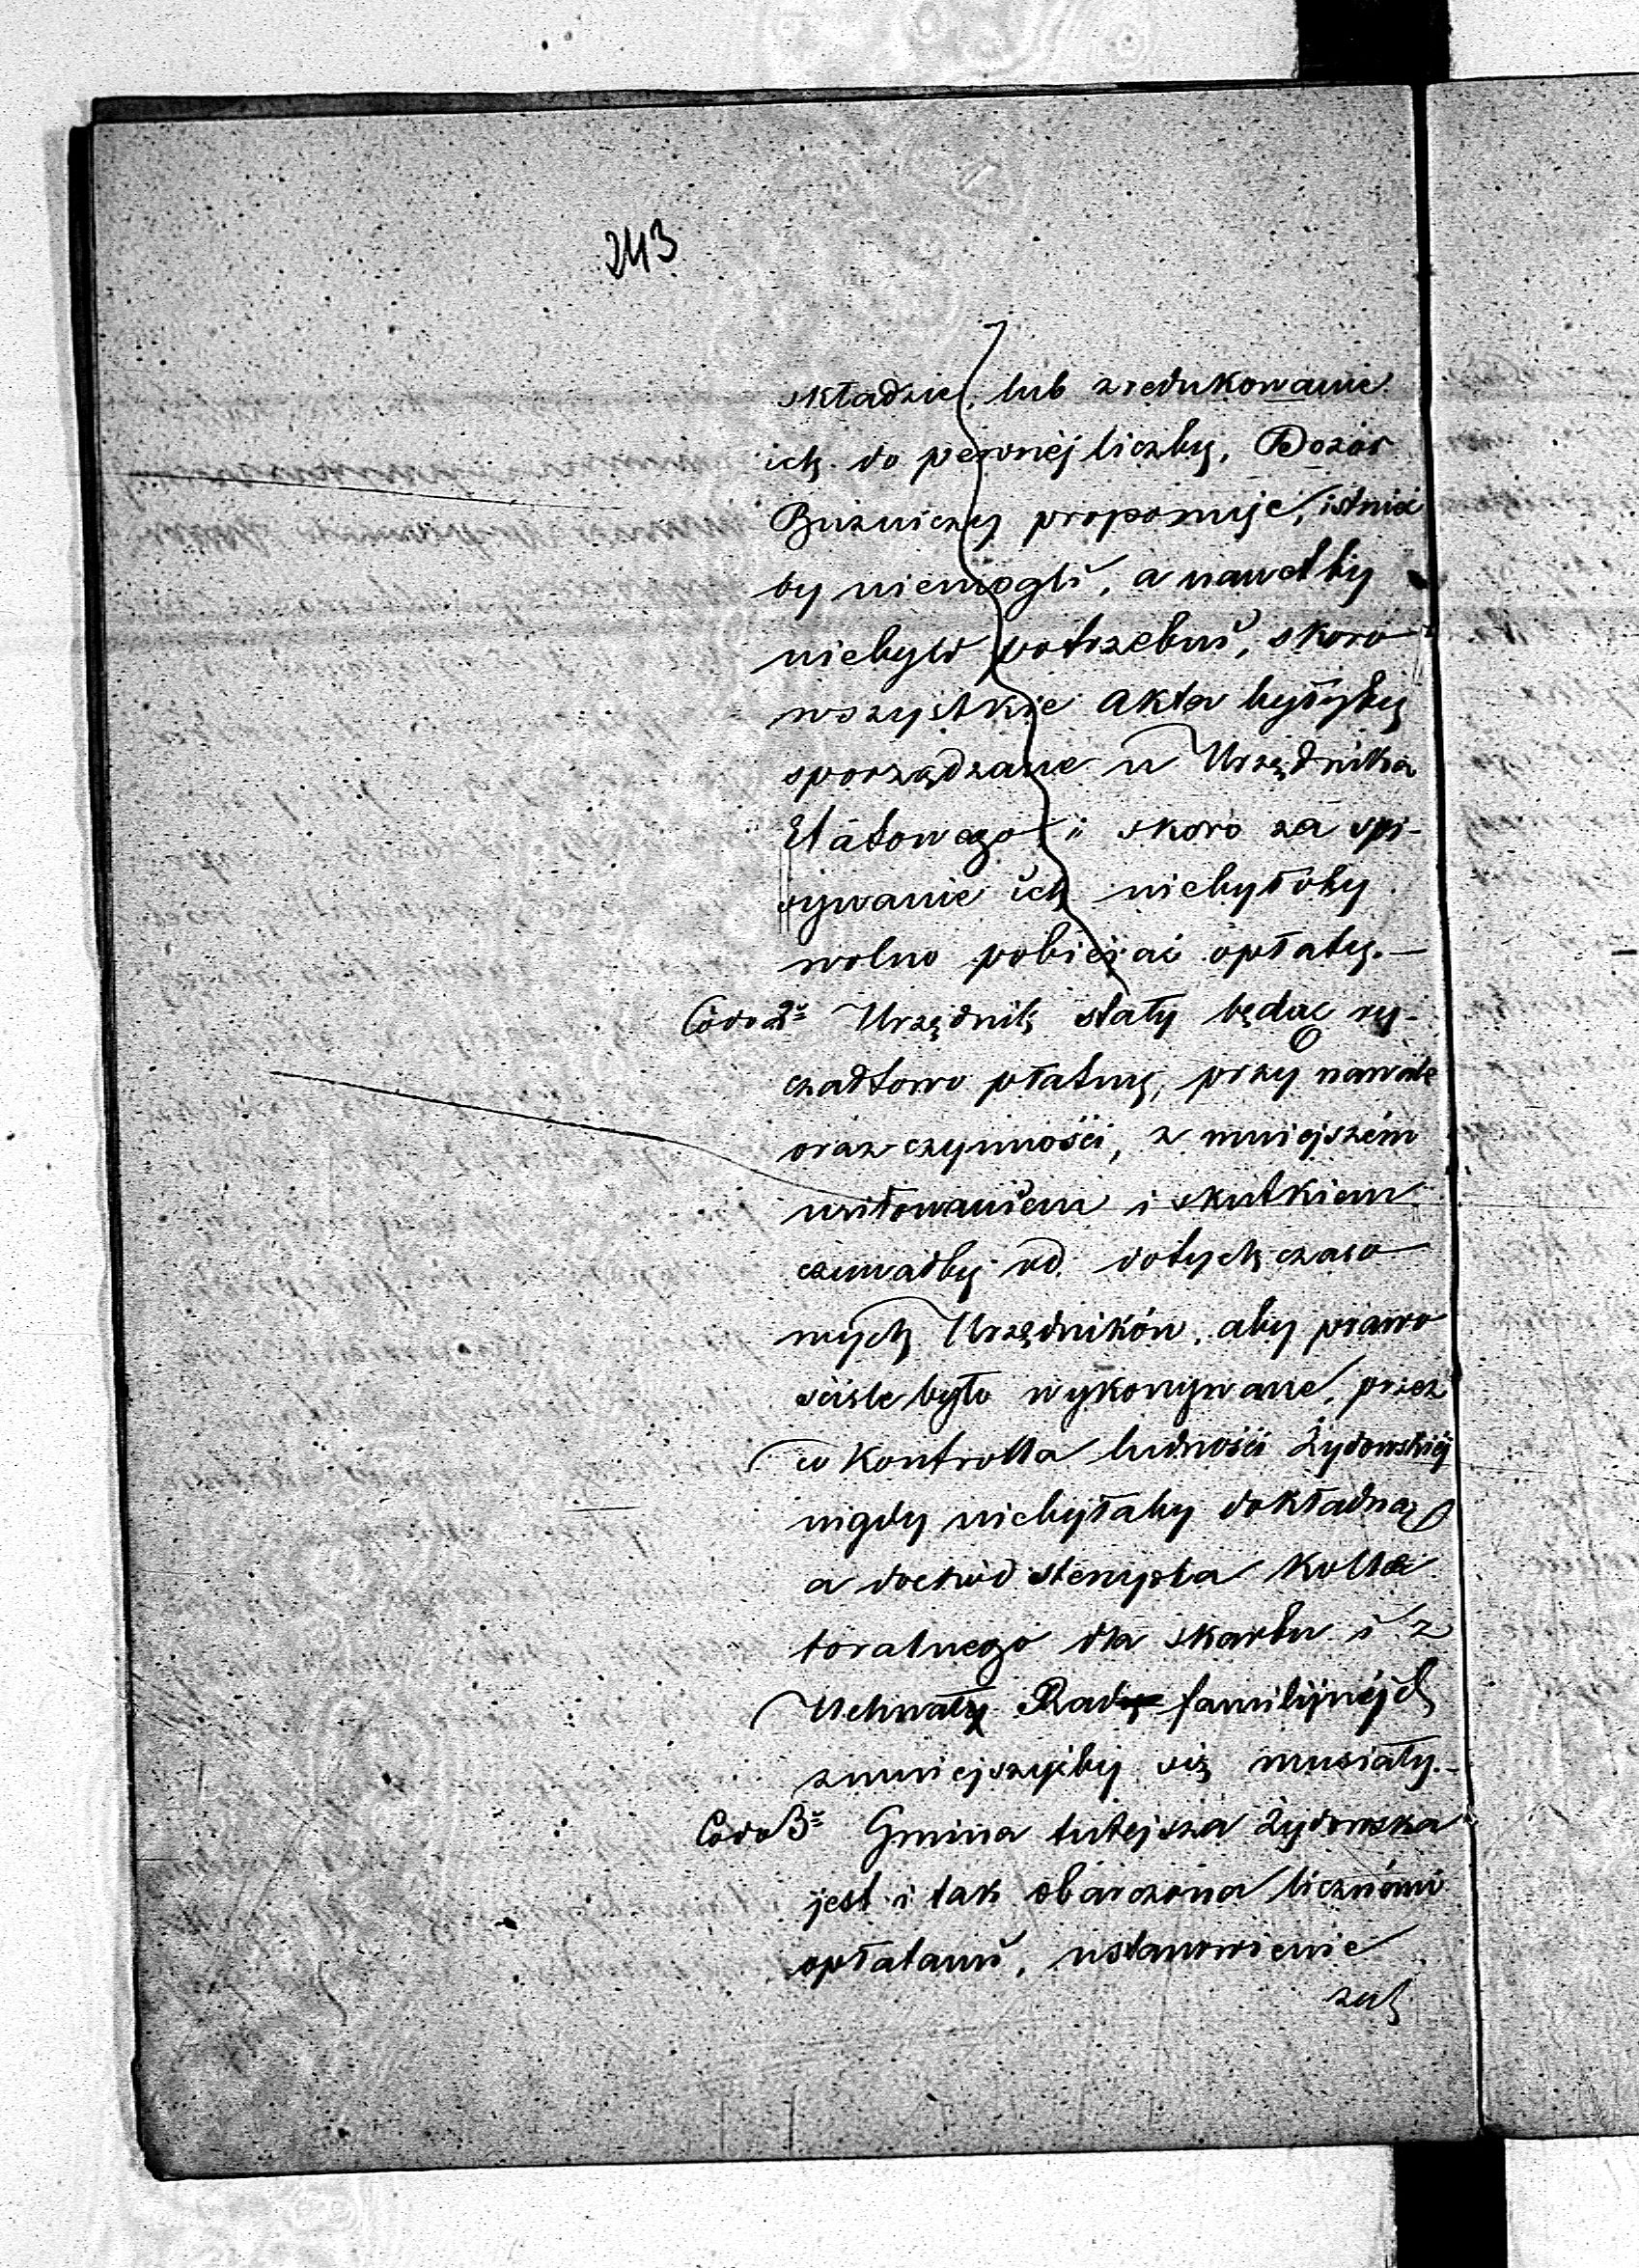 243
składzie, lub zredukowanie
ich do pewnéj liczby, Dozór
Bużniczy proponuje, istnie
by niemogli, a nawet by
niebyli potrzebni, skoro
wszystkie Akta byłyby
sporządzane u Urzędnika
Etatowego i skoro za spi-
sywanie ich niebyłoby
wolno pobierać opłaty.—
Codo 2º Urzędnik stały będąc ry-
czałtowo płatny, przy nawale
oraz czynności, z mniejszém
usiłowaniem i skutkiem
czuwałby od dotychczaso
wych Urzędników, aby prawo
ściśle było wykonywane, przez
co Kontrolla ludności Żydowskiéj
nigdy niebyłaby dokładną
a dochód stempla Kolla
toralnego dla skarbu i z
Uchwały Rad familijnéjch
zmniejszyćby się musiały.—
Codo 3º Gmina tutejsza Żydowska
jest i tak obarczona licznémi
opłatami, ustanowienie
zaś